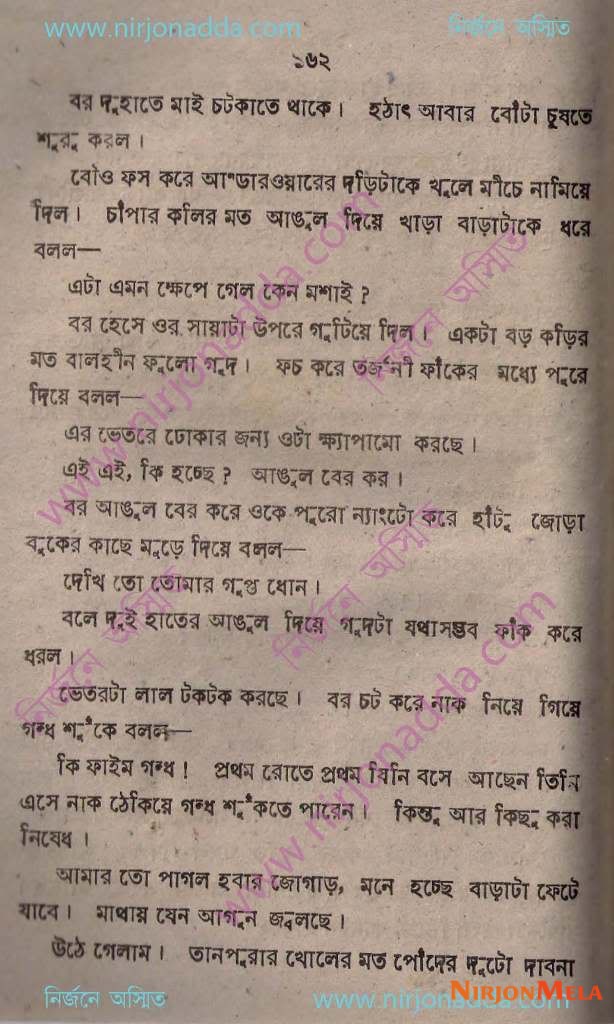 www.nirjonadda.com নির্জনে অস্মিত
১৬২
বর দুহাতে মাই চটকাতে থাকে। হঠাৎ আবার বোঁটা চুষতে
শুরু করল।
বৌও ফস করে আণ্ডারওয়ারের দড়িটাকে খুলে নীচে নামিয়ে
দিল। চাঁপার কলির মত আঙুল দিয়ে খাড়া বাড়াটাকে ধরে
বলল—
এটা এমন ক্ষেপে গেল কেন মশাই?
বর হেসে ওর সায়াটা উপরে গুটিয়ে দিল। একটা বড় কড়ির
মত বালহীন ফুলো গুদ। ফচ করে তর্জনী ফাঁকের মধ্যে পুরে
দিয়ে বলল—
এর ভেতরে ঢোকার জন্য ওটা ক্ষ্যাপামো করছে।
এই এই, কি হচ্ছে? আঙুল বের কর।
বর আঙুল বের করে ওকে পুরো ন্যাংটো করে হাঁটু জোড়া
বুকের কাছে মুড়ে দিয়ে বলল—
দেখি তো তোমার গুপ্ত ধোন।
বলে দুই হাতের আঙুল দিয়ে গুদটা যথাসম্ভব ফাঁক করে
ধরল।
ভেতরটা লাল টকটক করছে। বর চট করে নাক নিয়ে গিয়ে
গন্ধ শুঁকে বলল—
কি ফাইন গন্ধ! প্রথম রোতে প্রথম যিনি বসে আছেন তিনি
এসে নাক ঠেকিয়ে গন্ধ শুঁকতে পারেন। কিন্তু আর কিছু করা
নিষেধ।
আমার তো পাগল হবার জোগাড়, মনে হচ্ছে বাড়াটা ফেটে
যাবে। মাথায় যেন আগুন জ্বলছে।
উঠে গেলাম। তানপুরার খোলের মত পোঁদের দুটো দাবনা
নির্জনে অস্মিত www.nirjonadda.com
NIRJONMELA